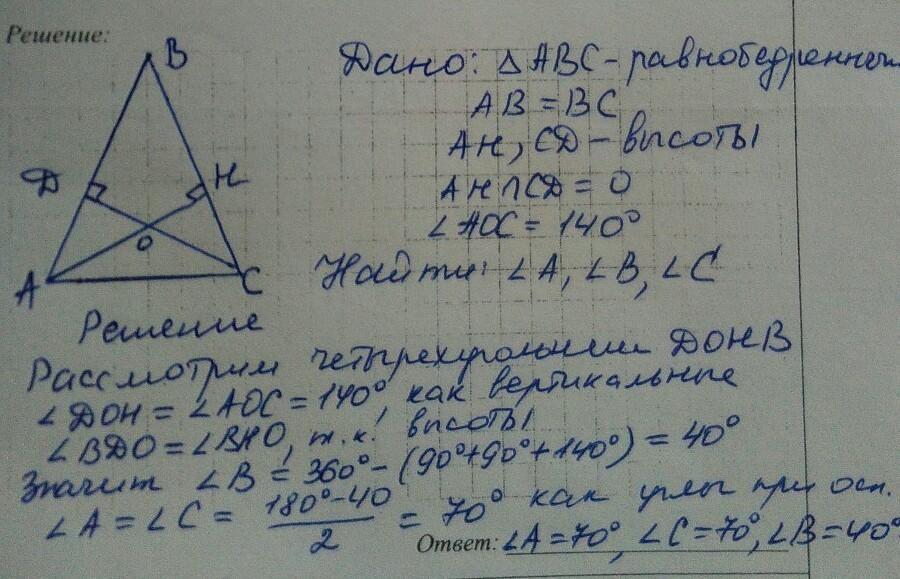 Решение:
В
Д
Н
О
А
С
Дано: △ ABC - равнобедренный
AB = BC
AH, CD - высоты
AH ∩ CD = O
∠AOC = 140°
Найти: ∠A, ∠B, ∠C
Решение
Рассмотрим четырехугольник DOHB
∠DOH = ∠AOC = 140°, как вертикальные
∠BDO = ∠BHO, т.к. высоты
Значит ∠B = 360° - (90° + 90° + 140°) = 40°
∠A = ∠C = (180° - 40) / 2 = 70° как углы при осн.
Ответ: ∠A = 70°, ∠C = 70°, ∠B = 40°